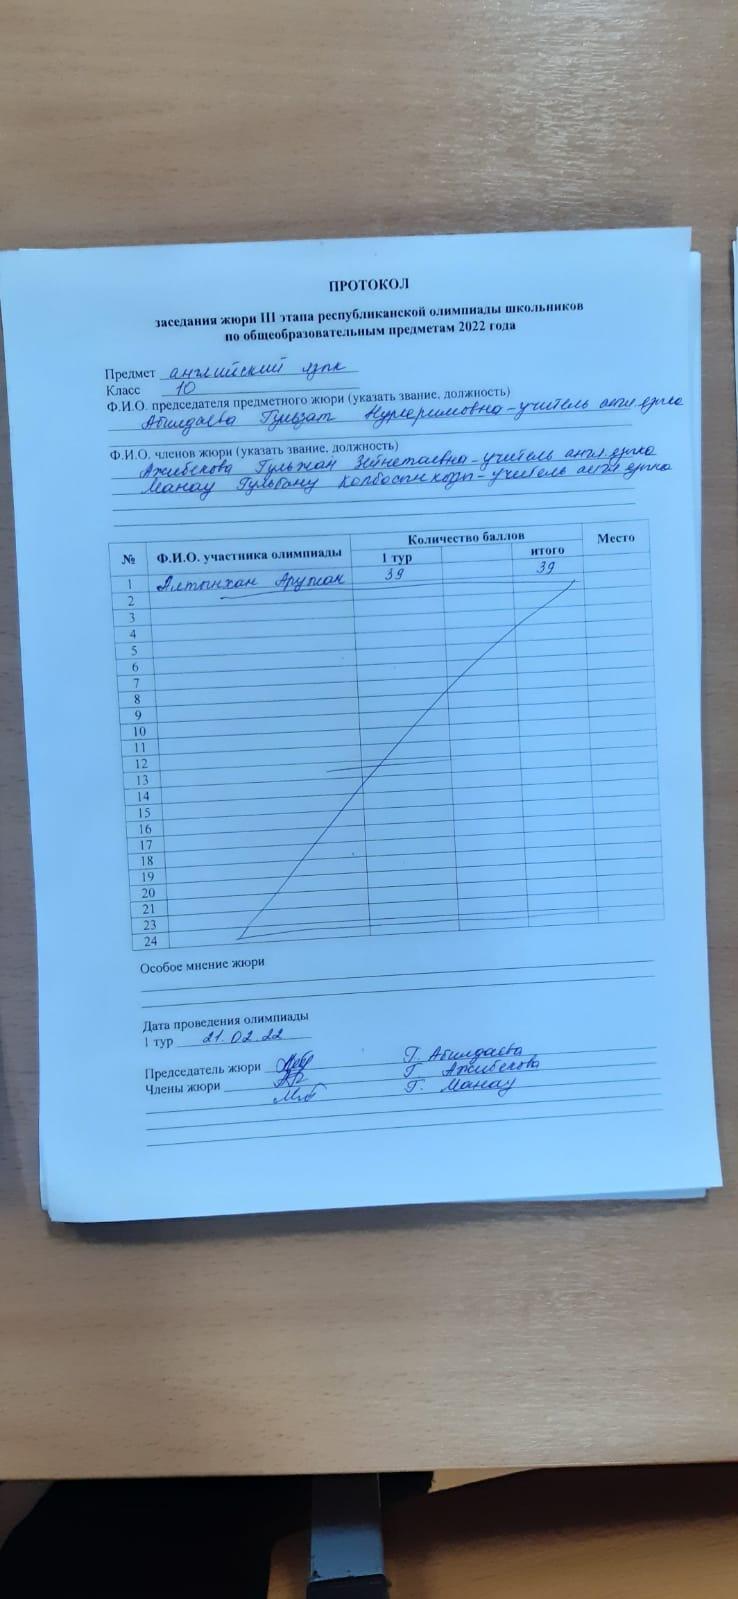 ПРОТОКОЛ
заседания жюри III этапа республиканской олимпиады школьников
по общеобразовательным предметам 2022 года
Предмет английский язык
Класс 10
Ф.И.О. председателя предметного жюри (указать звание, должность)
Абилдаева Гульзат - учитель англ языка
Ф.И.О. членов жюри (указать звание, должность)
Ажибекова Гульжан Зейнетаевна - учитель англ языка
Манау Гульбану - учитель англ языка
№ Ф.И.О. участника олимпиады Количество баллов Место
1 тур итого
1 Алтынхан Аружан 39 39
2
3
4
5
6
7
8
9
10
11
12
13
14
15
16
17
18
19
20
21
23
24
Особое мнение жюри
Дата проведения олимпиады
1 тур 21.02.22
Председатель жюри Г. Абилдаева
Члены жюри Г. Ажибекова
Г. Манау